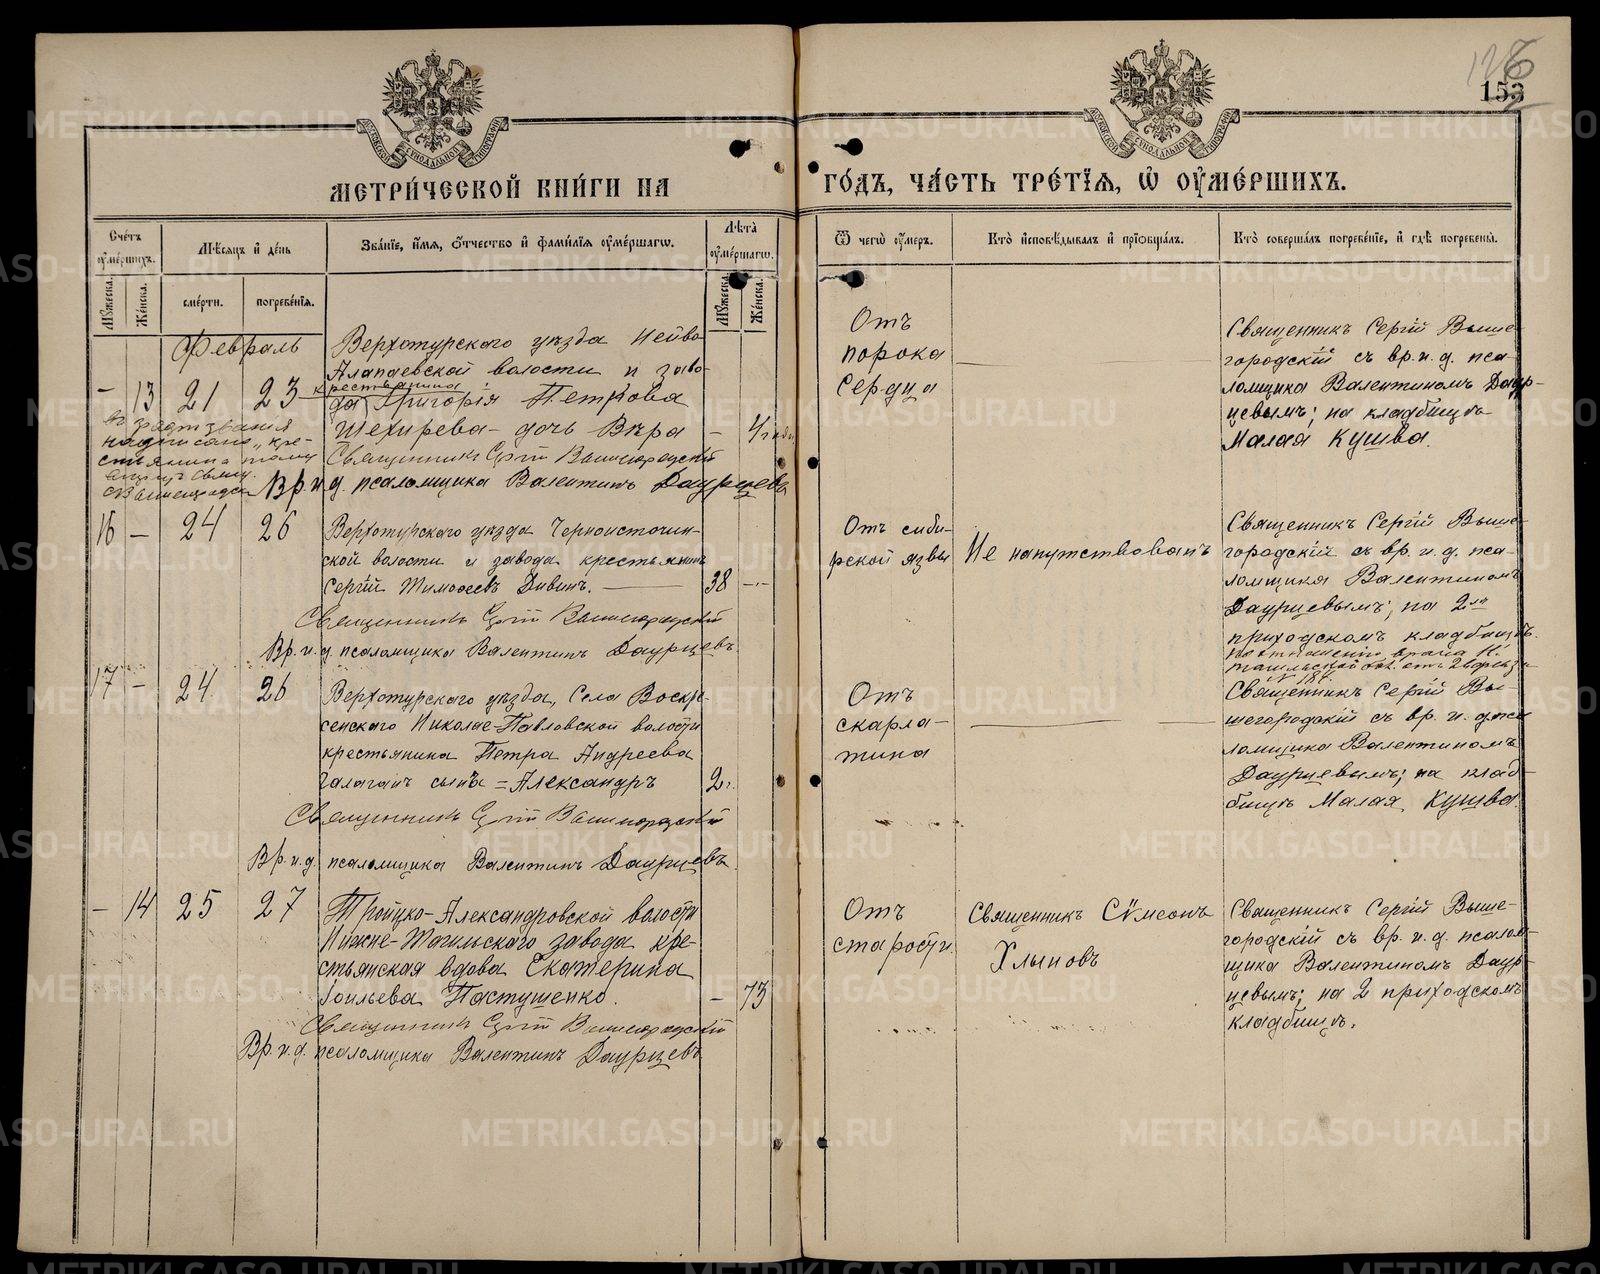 126
153
МЕТРИ́ЧЕСКОЙ КНИ́ГИ НА
ГО́ДЪ, ЧА́СТЬ ТРЕ́ТІѦ, Ѡ҆ ОУ҆МЕ́РШИХЪ.
Сче́тъ оу҆ме́ршихъ.
Мѣ́сѧцъ и҆ де́нь
Зва́нїе, и҆́мѧ, ѻ҆́тчество и҆ фами́лїѧ оу҆ме́ршагѡ.
Лѣ́та оу҆ме́ршагѡ.
Ѿ чегѡ̀ оу҆́меръ.
Кто̀ и҆сповѣ́дывалъ и҆ прїѡбща́лъ.
Кто̀ соверша́лъ погребе́нїе, и҆ гдѣ̀ погребены̀.
Мꙋ́жеска.
Же́нска.
сме́рти.
погребе́нїѧ.
Мꙋ́жеска.
Же́нска.
Февраль
– 13 21 23
Верхотурскаго уѣзда Нейво-
Алапаевской волости и заво-
крестьянина
да Григорія Петрова
Шехирева – дочь Вѣра –
Священникъ Сергій Вышегородскій
Вр. и. д. псаломщика Валентинъ Даурцевъ
надписано „кре-
стьянина"
Отъ
порока
сердца
Священникъ Сергій Выше-
городскій съ вр. и. д. пса-
ломщика Валентиномъ Даур-
цевымъ; на кладбищѣ
Малая Кушва.
16 – 24 26
Верхотурскаго уѣзда Черноисточин-
ской волости и завода крестьянинъ
Сергій Тимоѳеевъ Дивинъ. 38 –
Священникъ Сергій Вышегородскій
Вр. и. д. псаломщика Валентинъ Даурцевъ.
Отъ сиби-
рской язвы
Не напутствованъ
Священникъ Сергій Выше-
городскій съ вр. и. д. пса-
ломщика Валентиномъ
Даурцевымъ; на 2мъ
приходскомъ кладбищѣ.
по отношенію врача Н.
17 – 24 26
Верхотурскаго уѣзда, Села Воскре-
сенскаго Николае-Павловской волости
крестьянина Петра Андреева
Галаганъ сынъ = Александръ 2г.
Священникъ Сергій Вышегородскій
Вр. и. д. псаломщика Валентинъ Даурцевъ.
Отъ
скарла-
тина
Священникъ Сергій Вы-
шегородскій съ вр. и. д. пса
ломщика Валентиномъ
Даурцевымъ; на клад-
бищѣ Малая Кушва.
– 14 25 27
Тройцко-Александровской волости
Нижне-Тагильскаго завода кре-
стьянская вдова Екатерина
Пастушенко. – 73
Священникъ Сергій Вышегородскій
Вр. и. д. псаломщика Валентинъ Даурцевъ
Отъ
старости
Священникъ Сѵмеонъ
Хлыновъ
Священникъ Сергій Выше-
городскій съ вр. и. д. псалом-
щика Валентиномъ Даур-
цевымъ; на 2 приходскомъ
кладбищѣ.
METRIKI.GASO-URAL.RU